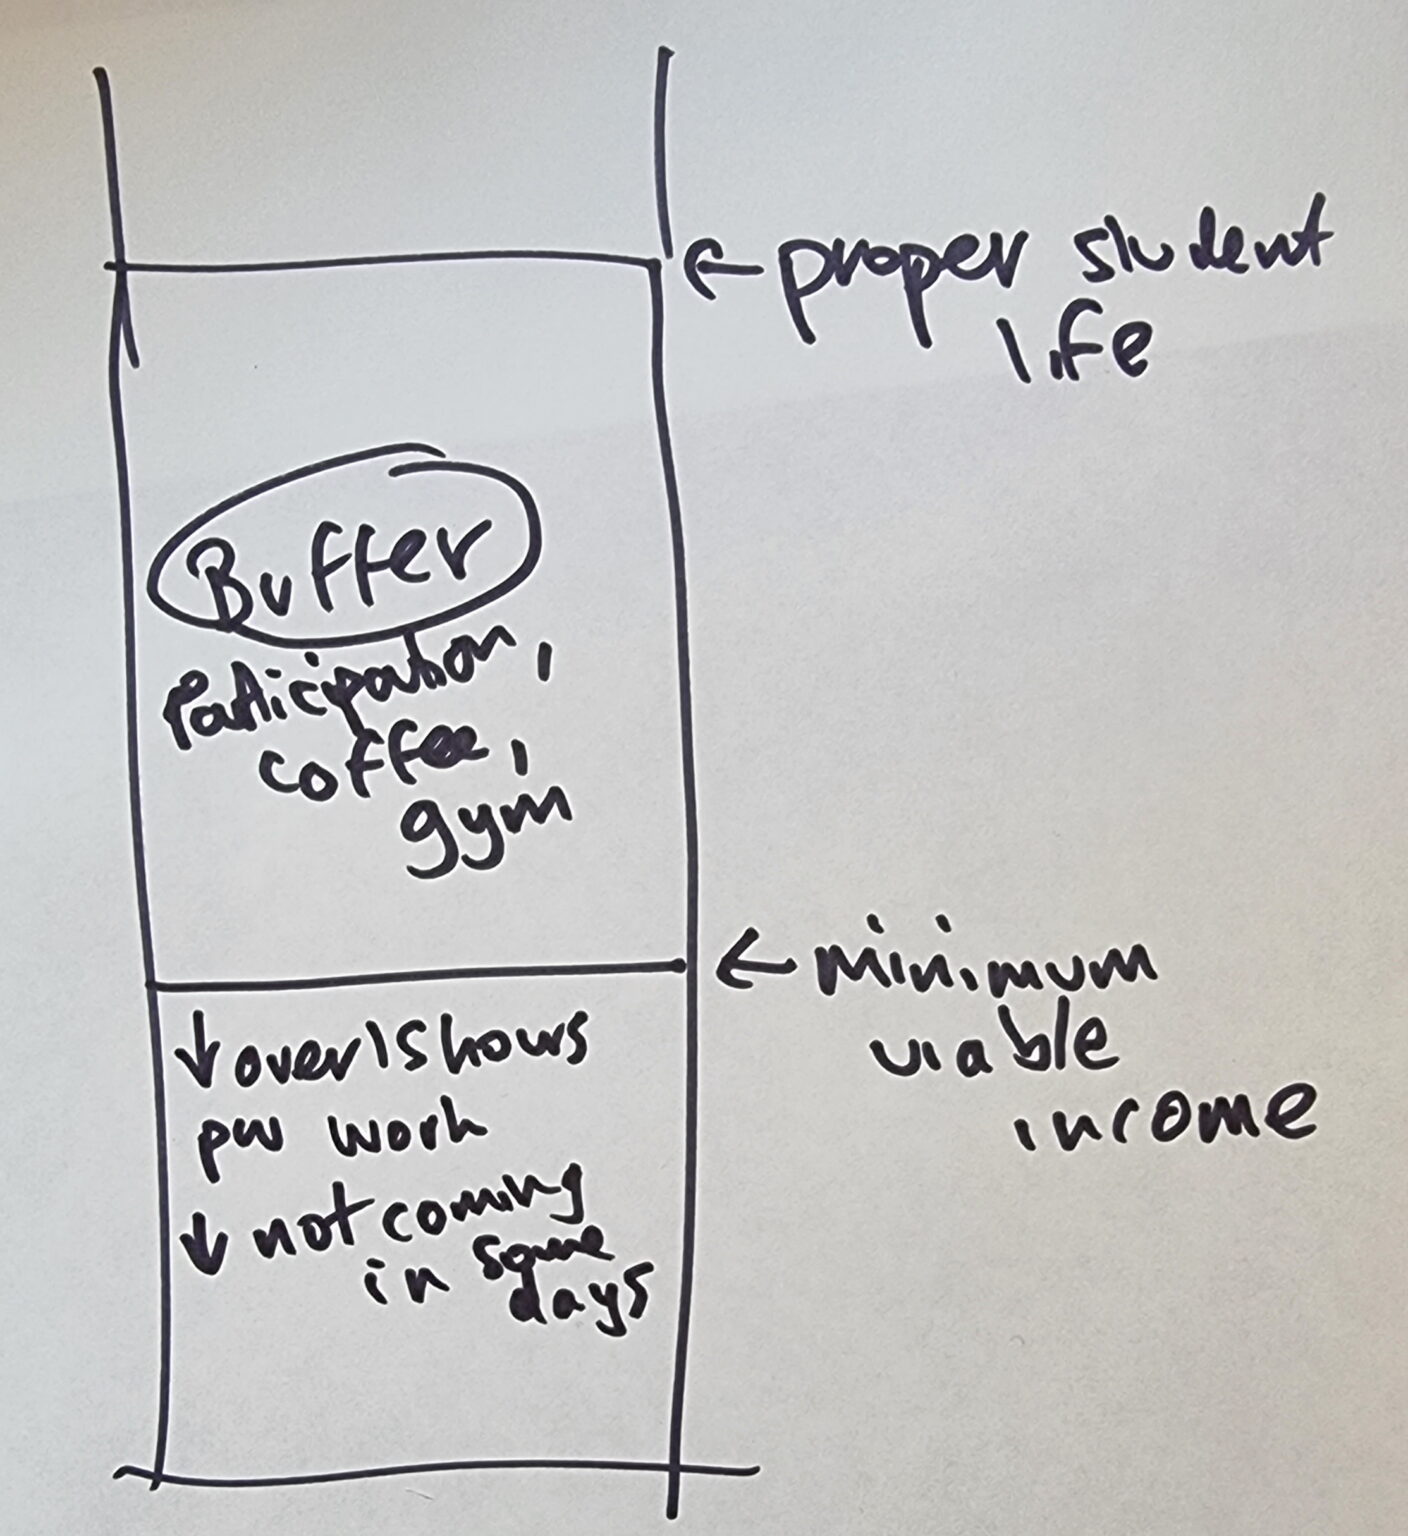 ← proper student
life
Buffer
Participation,
coffee,
gym
← minimum
viable
income
↓ over 15 hours
pw work
↓ not coming
in some
days